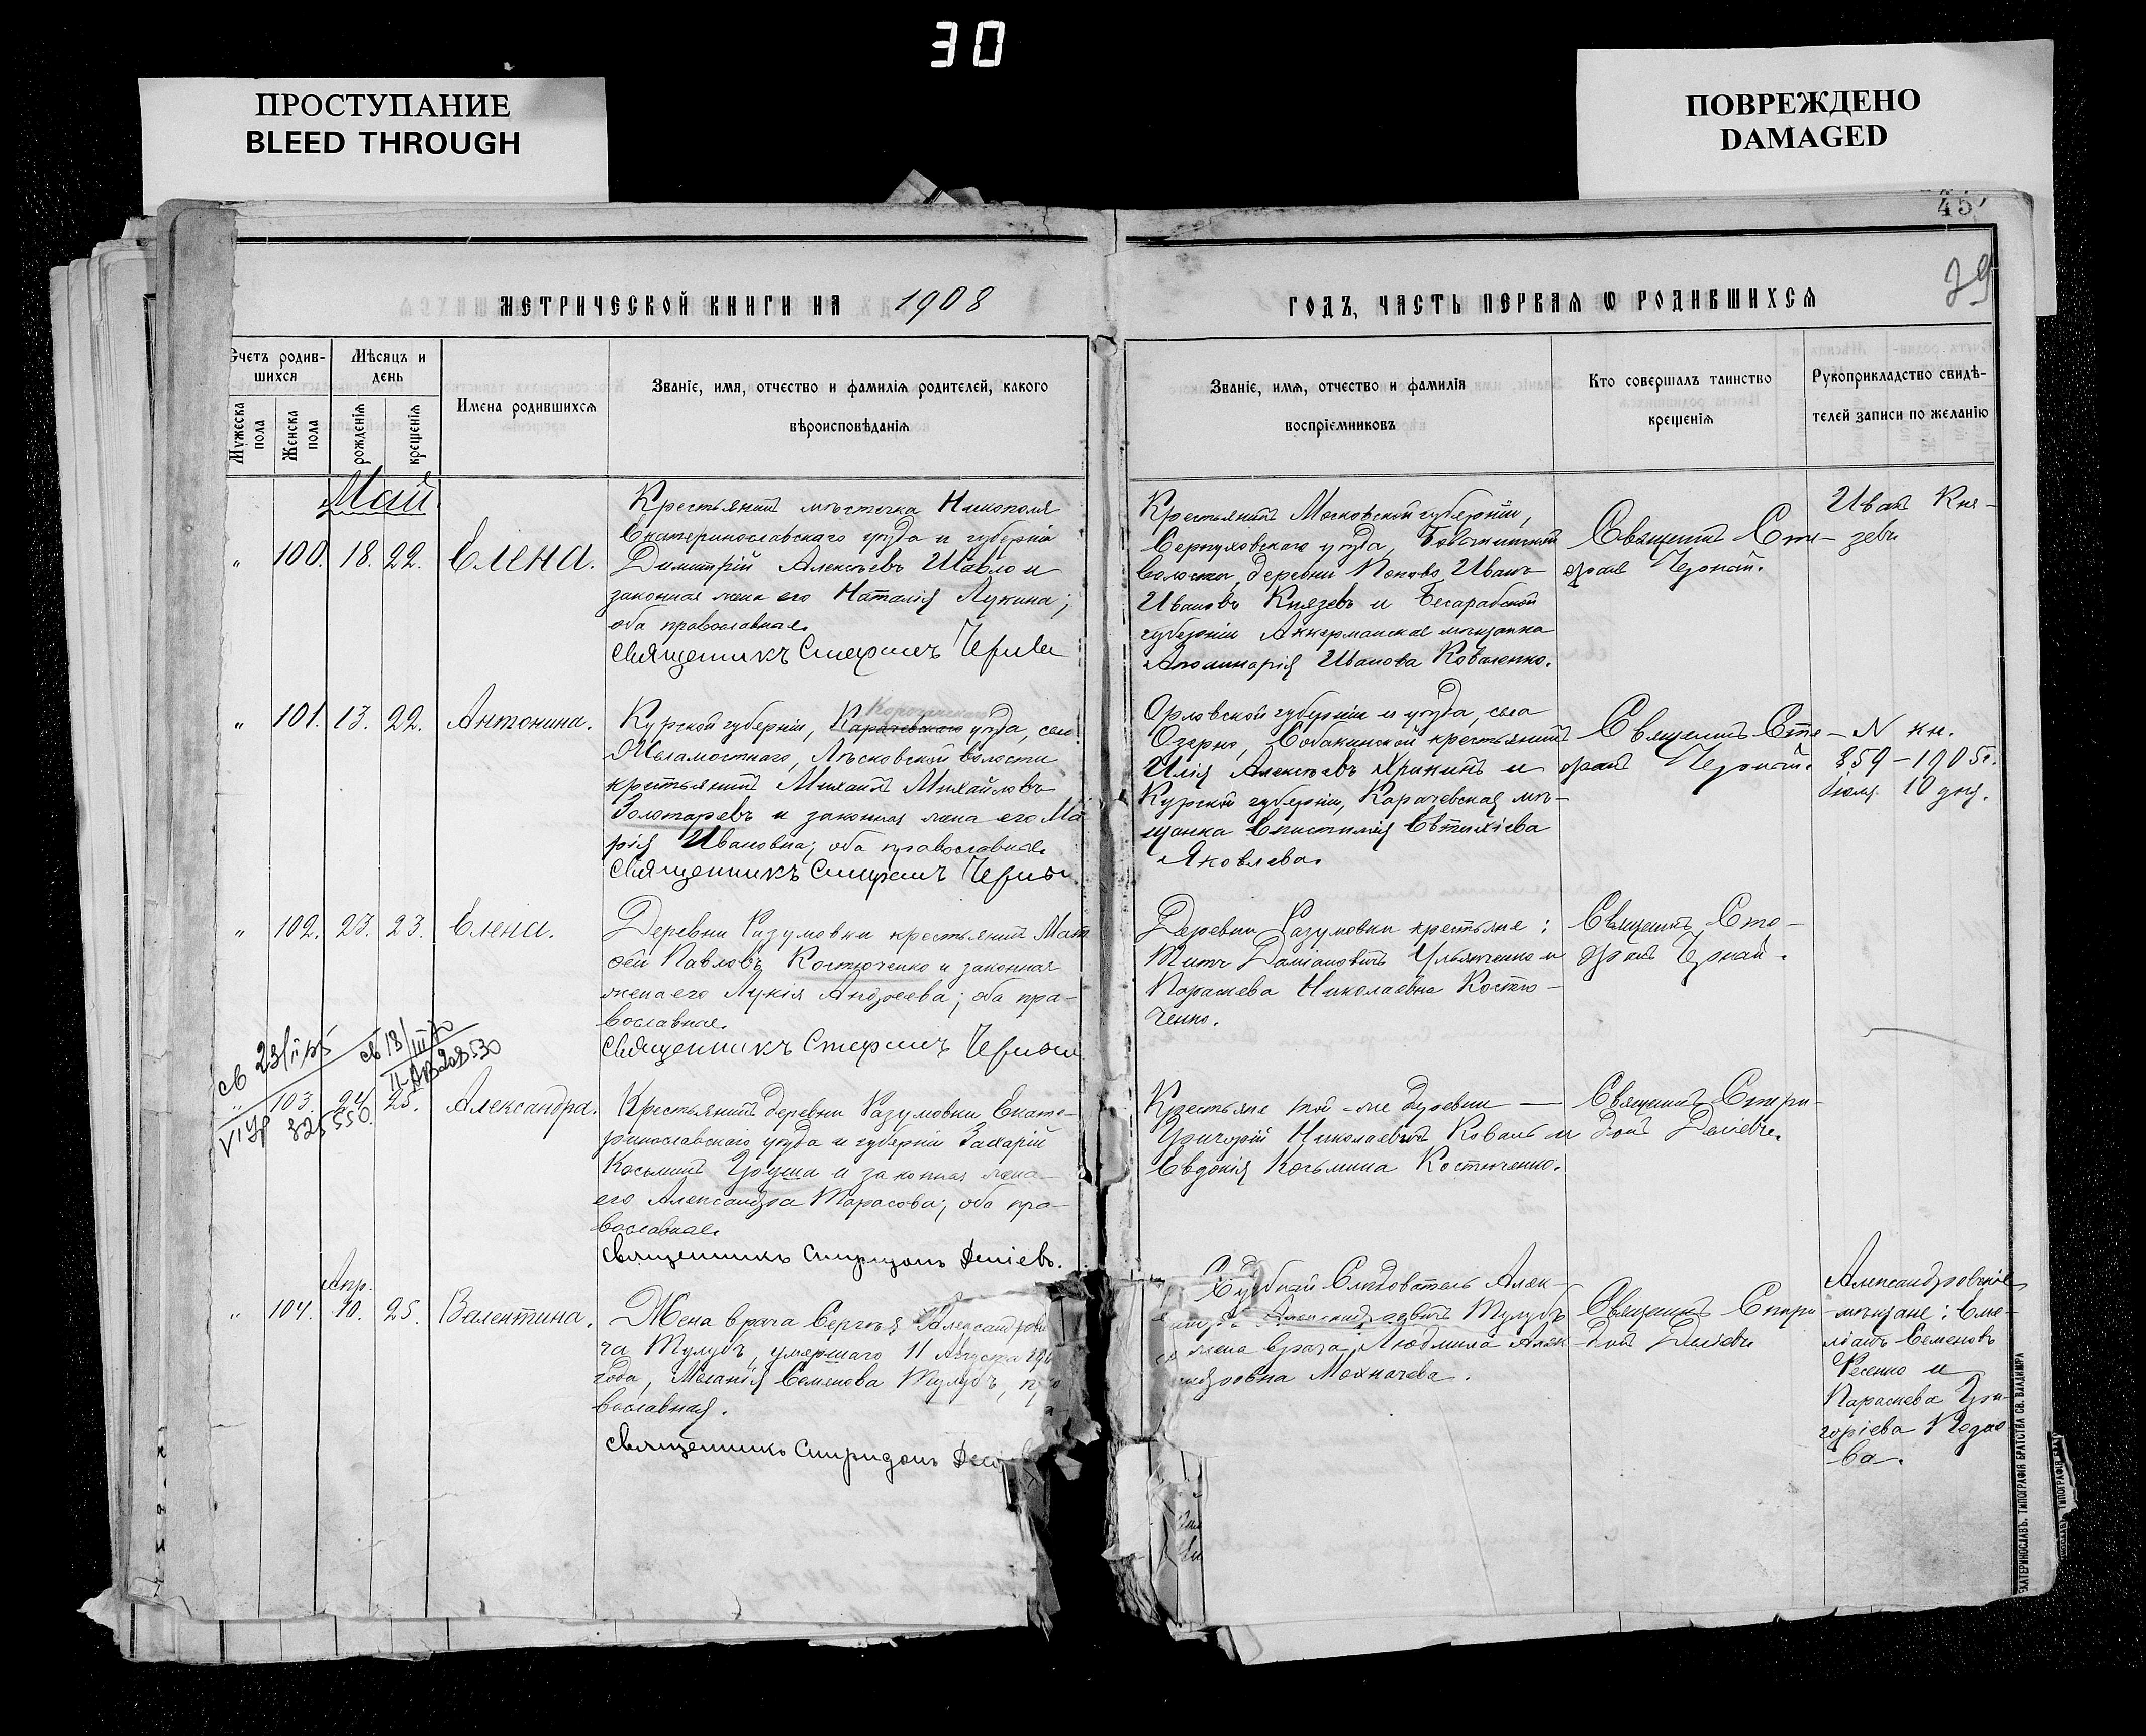 30
ПРОСТУПАНИЕ
BLEED THROUGH
ПОВРЕЖДЕНО
DAMAGED
45
79
МЕТРИЧЕСКОЙ КНИГИ НА 1908
ГОДЪ, ЧАСТЬ ПЕРВАЯ Ѡ РОДИВШИХСЯ
Счетъ родив-
шихся
Мужеска пола
Женска пола
Мѣсяцъ и
день
рожденія
крещенія
Имена родившихся
Званіе, имя, отчество и фамилія родителей, какого
вѣроисповѣданія
Званіе, имя, отчество и фамилія
воспріемниковъ
Кто совершалъ таинство
крещенія
Рукоприкладство свидѣ-
телей записи по желанію
Май.
" 100. 18. 22. Елена.
Крестьянинъ мѣстечка Никополя
Екатеринославскаго уѣзда и губерніи
Димитрій Алексѣевъ Шавло и
законная жена его Наталія Лукина;
оба православные.
Священникъ Стефанъ
Крестьянинъ Московской губерніи,
Серпуховского уѣзда,
волости, деревни Попово Иванъ
Ивановъ Князевъ и Бесарабской
губерніи Аккерманская мѣщанка
Аполинарія Иванова Коваленко.
Священникъ Сте-
фанъ
Иванъ Кня-
зевъ
" 101. 13. 22. Антонина.
Курской губерніи, Карачевскаго уѣзда, села
волости
крестьянинъ Михаилъ Михайловъ
Золотаревъ и законная жена его Ма-
рія Ивановна; оба православные.
Священникъ Стефанъ
Орловской губерніи и уѣзда, села
Озерно, Собакинской крестьянинъ
Илія Алексѣевъ и
Курской губерніи, Карачевская мѣ-
щанка Епистимія Евтихіева
Яковлева.
Священникъ Сте-
фанъ
N кн.
859-1905г.
10 дня.
" 102. 23. 23. Елена.
Деревни Разумовки крестьянинъ Мат-
ѳей Павловъ Костюченко и законная
жена его Лукія Андреева; оба пра-
вославные.
Священникъ Стефанъ
Деревни Разумовки крестьяне:
Титъ Даміановичъ Ульянченко и
Параскева Николаевна Костю-
ченко.
Священникъ Сте-
фанъ
св 23/II
св 13/III
VI УР 825550
II-АВ 208530
" 103. 24. 25. Александра.
Крестьянинъ деревни Разумовки Екате-
ринославскаго уѣзда и губерніи Захарій
Косьминъ и законная жена
его Александра Тарасова; оба пра-
вославные.
Священникъ Спиридонъ Деніевъ.
Крестьяне той-же деревни —
Григорій Николаевичъ Коваль и
Евдокія Косьмина Костюченко.
Священникъ Спири-
донъ Деніевъ.
Апр.
" 104. 10. 25. Валентина.
Жена врача Сергѣя Александрови-
ча Тулубъ, умершаго 11 Августа
года, Меланія Семенова Тулубъ,
вославная.
Священникъ Спиридонъ
Судебный Слѣдователь Алек-
Александровичъ Тулубъ
жена врача Людмила Алек-
Махначева.
Священникъ Спири-
донъ Деніевъ
Александровскіе
мѣщане:
Семеновъ
и
Параскева Гри-
горіева
ва.
ЕКАТЕРИНОСЛАВЪ. ТИПОГРАФІЯ БРАТСТВА СВ. ВЛАДИМІРА